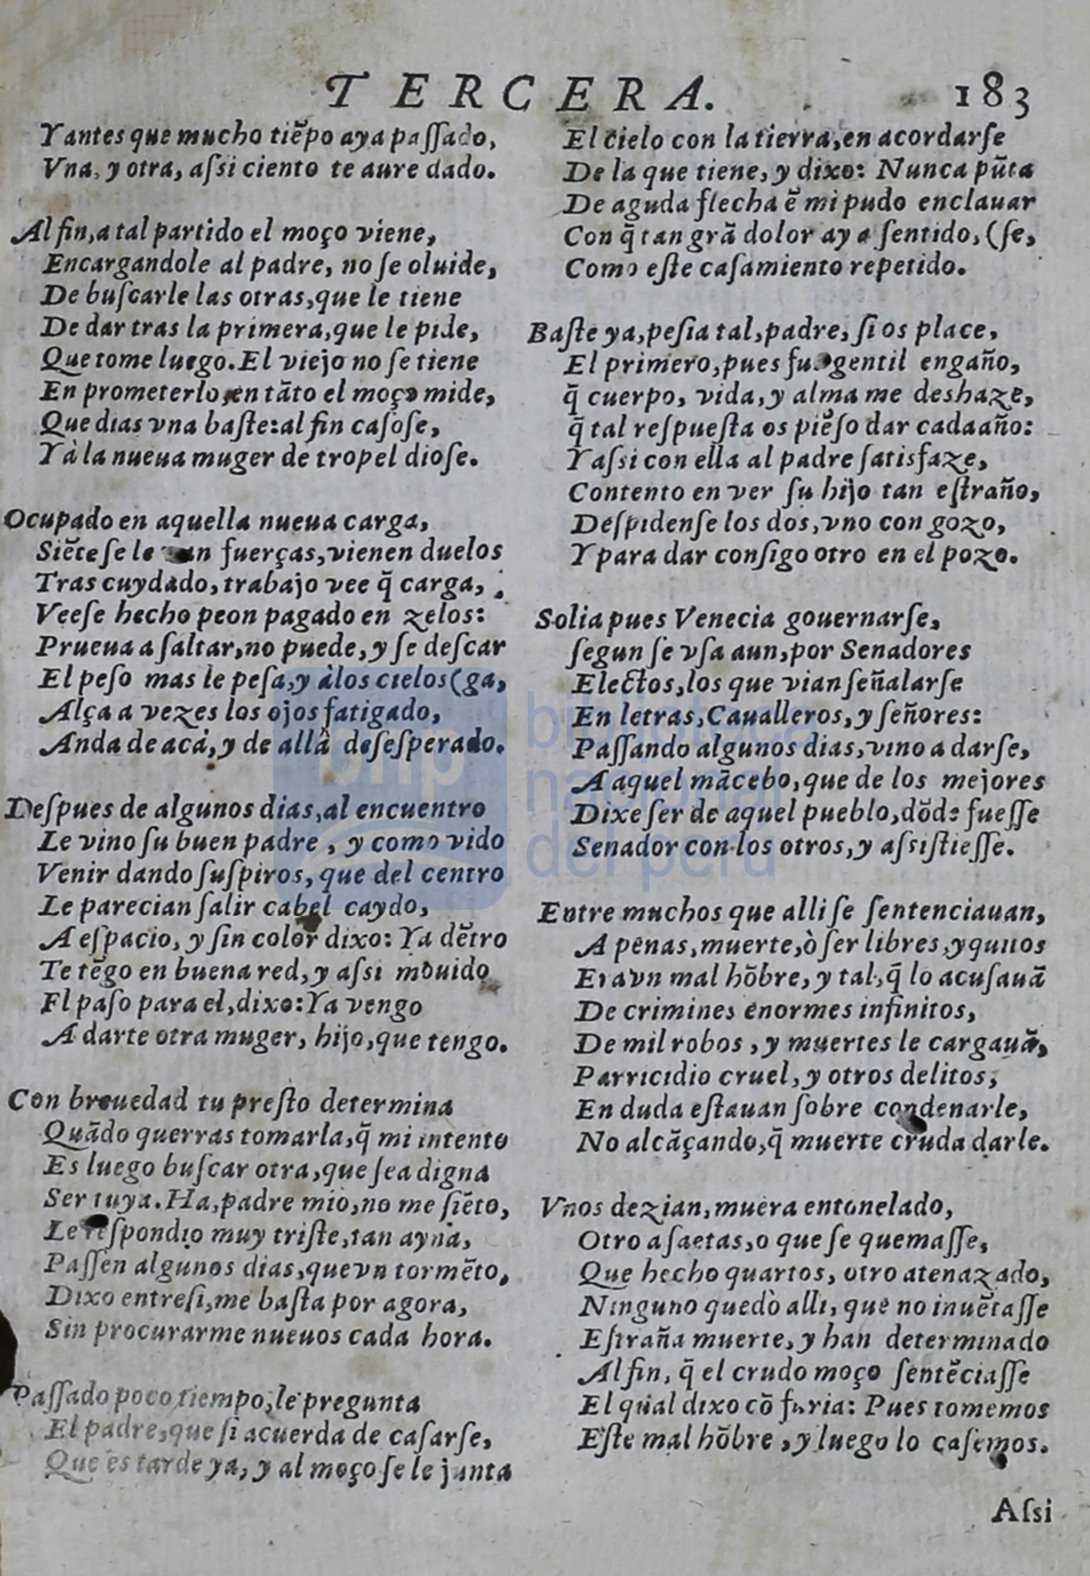 TERCERA. 183
Y antes que mucho tiẽpo aya paſſado,
Vna, y otra, aſsi ciento te aure dado.
Al fin, a tal partido el moço viene,
Encargandole al padre, no ſe oluide,
De buſcarle las otras, que le tiene
De dar tras la primera, que le pide,
Que tome luego. El viejo no ſe tiene
En prometerlo, en tãto el moço mide,
Que dias vna baſte: al fin caſoſe,
Y à la nueua muger de tropel dioſe.
Ocupado en aquella nueua carga,
Siẽteſe le fuerças, vienen duelos
Tras cuydado, trabajo vee q̃ carga,
Veeſe hecho peon pagado en zelos:
Prueua a ſaltar, no puede, y ſe deſcar
El peſo mas le peſa, y àlos cielos (ga,
Alça a vezes los ojos fatigado,
Anda de acà, y de allà deſeſperado.
Deſpues de algunos dias, al encuentro
Le vino ſu buen padre, y como vido
Venir dando ſuſpiros, que del centro
Le parecian ſalir cabel caydo,
A eſpacio, y ſin color dixo: Ya dẽtro
Te tẽgo en buena red, y aſsi mouido
El paſo para el, dixo: Ya vengo
A darte otra muger, hijo, que tengo.
Con breuedad tu preſto determina
Quãdo querras tomarla, q̃ mi intento
Es luego buſcar otra, que ſea digna
Ser tuya. Ha, padre mio, no me ſiẽto,
Le reſpondio muy triſte, tan ayna,
Paſſen algunos dias, que vn tormẽto,
Dixo entreſi, me baſta por agora,
Sin procurarme nueuos cada hora.
Paſſado poco tiempo, le pregunta
El padre, que ſi acuerda de caſarſe,
Que es tarde ya, y al moço ſe le junta
El cielo con la tierra, en acordarſe
De la que tiene, y dixo: Nunca pũta
De aguda flecha ẽ mi pudo enclauar
Con q̃ tan grã dolor aya ſentido, (ſe,
Como eſte caſamiento repetido.
Baſte ya, peſia tal, padre, ſi os place,
El primero, pues fue gentil engaño,
q̃ cuerpo, vida, y alma me deshaze,
q̃ tal reſpueſta os piẽſo dar cada año:
Y aſsi con ella al padre ſatisfaze,
Contento en ver ſu hijo tan eſtraño,
Deſpidenſe los dos, vno con gozo,
Y para dar conſigo otro en el pozo.
Solia pues Venecia gouernarſe,
ſegun ſe vſa aun, por Senadores
Electos, los que vian ſeñalarſe
En letras, Caualleros, y ſeñores:
Paſſando algunos dias, vino a darſe,
A aquel mãcebo, que de los mejores
Dixe ſer de aquel pueblo, dõde fueſſe
Senador con los otros, y aſsiſtieſſe.
Entre muchos que alli ſe ſentenciauan,
A penas, muerte, ò ſer libres, y quitos
Era vn mal hõbre, y tal, q̃ lo acuſauã
De crimines enormes infinitos,
De mil robos, y muertes le cargauã,
Parricidio cruel, y otros delitos,
En duda eſtauan ſobre condenarle,
No alcãçando, q̃ muerte cruda darle.
Vnos dezian, muera entonelado,
Otro aſaetas, o que ſe quemaſſe,
Que hecho quartos, otro atenazado,
Ninguno quedò alli, que no inuẽtaſſe
Eſtraña muerte, y han determinado
Al fin, q̃ el crudo moço ſentẽciaſſe
El qual dixo cõ furia: Pues tomemos
Eſte mal hõbre, y luego lo caſemos.
Aſsi
bnp biblioteca
nacional
del perú